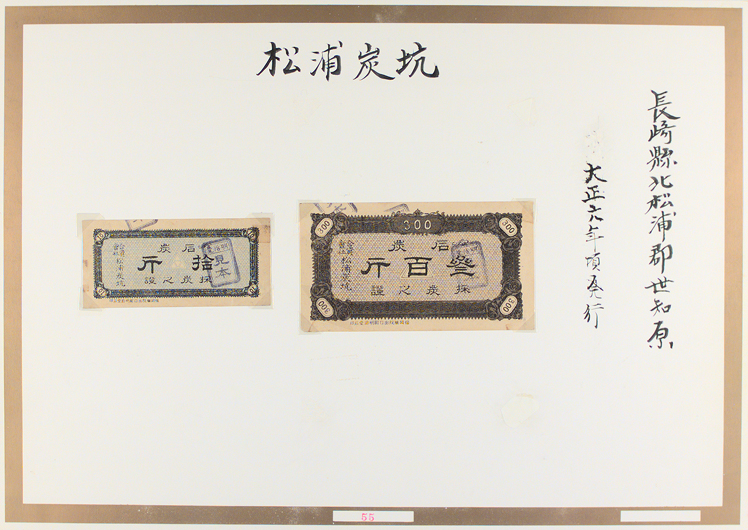 松浦炭坑
長崎縣北松浦郡世知原
大正六八年頃発行
石炭
拾斤
採炭之證
合資会社 松浦炭坑
見本
300
300
300
石炭
叁百斤
採炭之證
合資会社 松浦炭坑
300
300
55